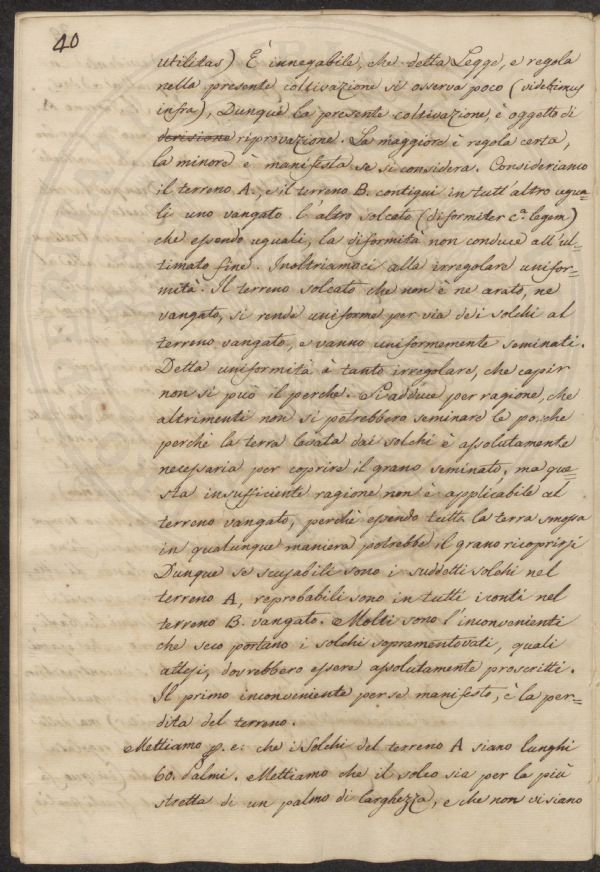 40
utilitas) È innegabile, che detta Legge, e regola
nella presente coltivazione si osserva poco (videbimus
infra), Dunque la presente coltivazione, è oggetto di
derisione riprovazione. La maggiore è regola certa,
la minore è manifesta se si considera. Consideriamo
il terreno A., e il terreno B. contigui in tutt'altro ugua=
li uno vangato l'altro solcato (diformiter cª legem)
che essendo uguali, la diformità non conduce all'ul=
timato fine. Inoltriamoci alla irregolare unifor=
mità. Il terreno solcato che non è ne arato, ne
vangato, si rende uniforme per via dei solchi al
terreno vangato, e vanno uniformemente seminati.
Detta uniformità è tanto irregolare, che capir
non si può il perchè. Si adduce per ragione, che
altrimenti non si potrebbero seminare le porche
perchè la terra levata dai solchi è assolutamente
necessaria per coprire il grano seminato, ma que=
sta insufficiente ragione non è applicabile al
terreno vangato, perchè essendo tutta la terra smossa
in qualunque maniera potrebbe il grano ricoprirsi
Dunque se scusabili sono i suddetti solchi nel
terreno A, reprobabili sono in tutti i conti nel
terreno B. vangato. Molti sono l'inconvenienti
che seco portano i solchi sopramentovati, quali
attesi, dovrebbero essere assolutamente proscritti.
Il primo inconveniente per se manifesto, è la per=
dita del terreno.
Mettiamo p. e: che i Solchi del terreno A siano lunghi
60. Palmi. Mettiamo che il solco sia per la più
stretta di un palmo di larghezza, e che non vi siano